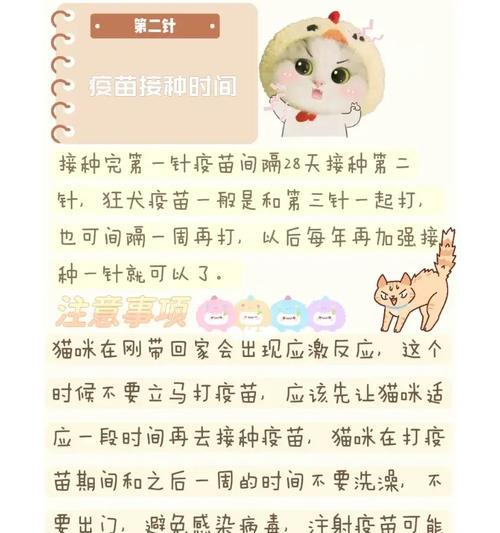 第二针
疫苗接种时间
接种完第一针疫苗间隔28天接种第二
针，狂犬疫苗一般是和第三针一起打，
也可间隔一周再打，以后每年再加强接
种一针就可以了。
注意事项
猫咪在刚带回家会出现应激反应，这个
时候不要立马打疫苗，应该先让猫咪适
应一段时间再去接种疫苗，猫咪在打疫
苗期间和之后一周的时间不要洗澡，不
要出门，避免感染病毒，注射疫苗可能